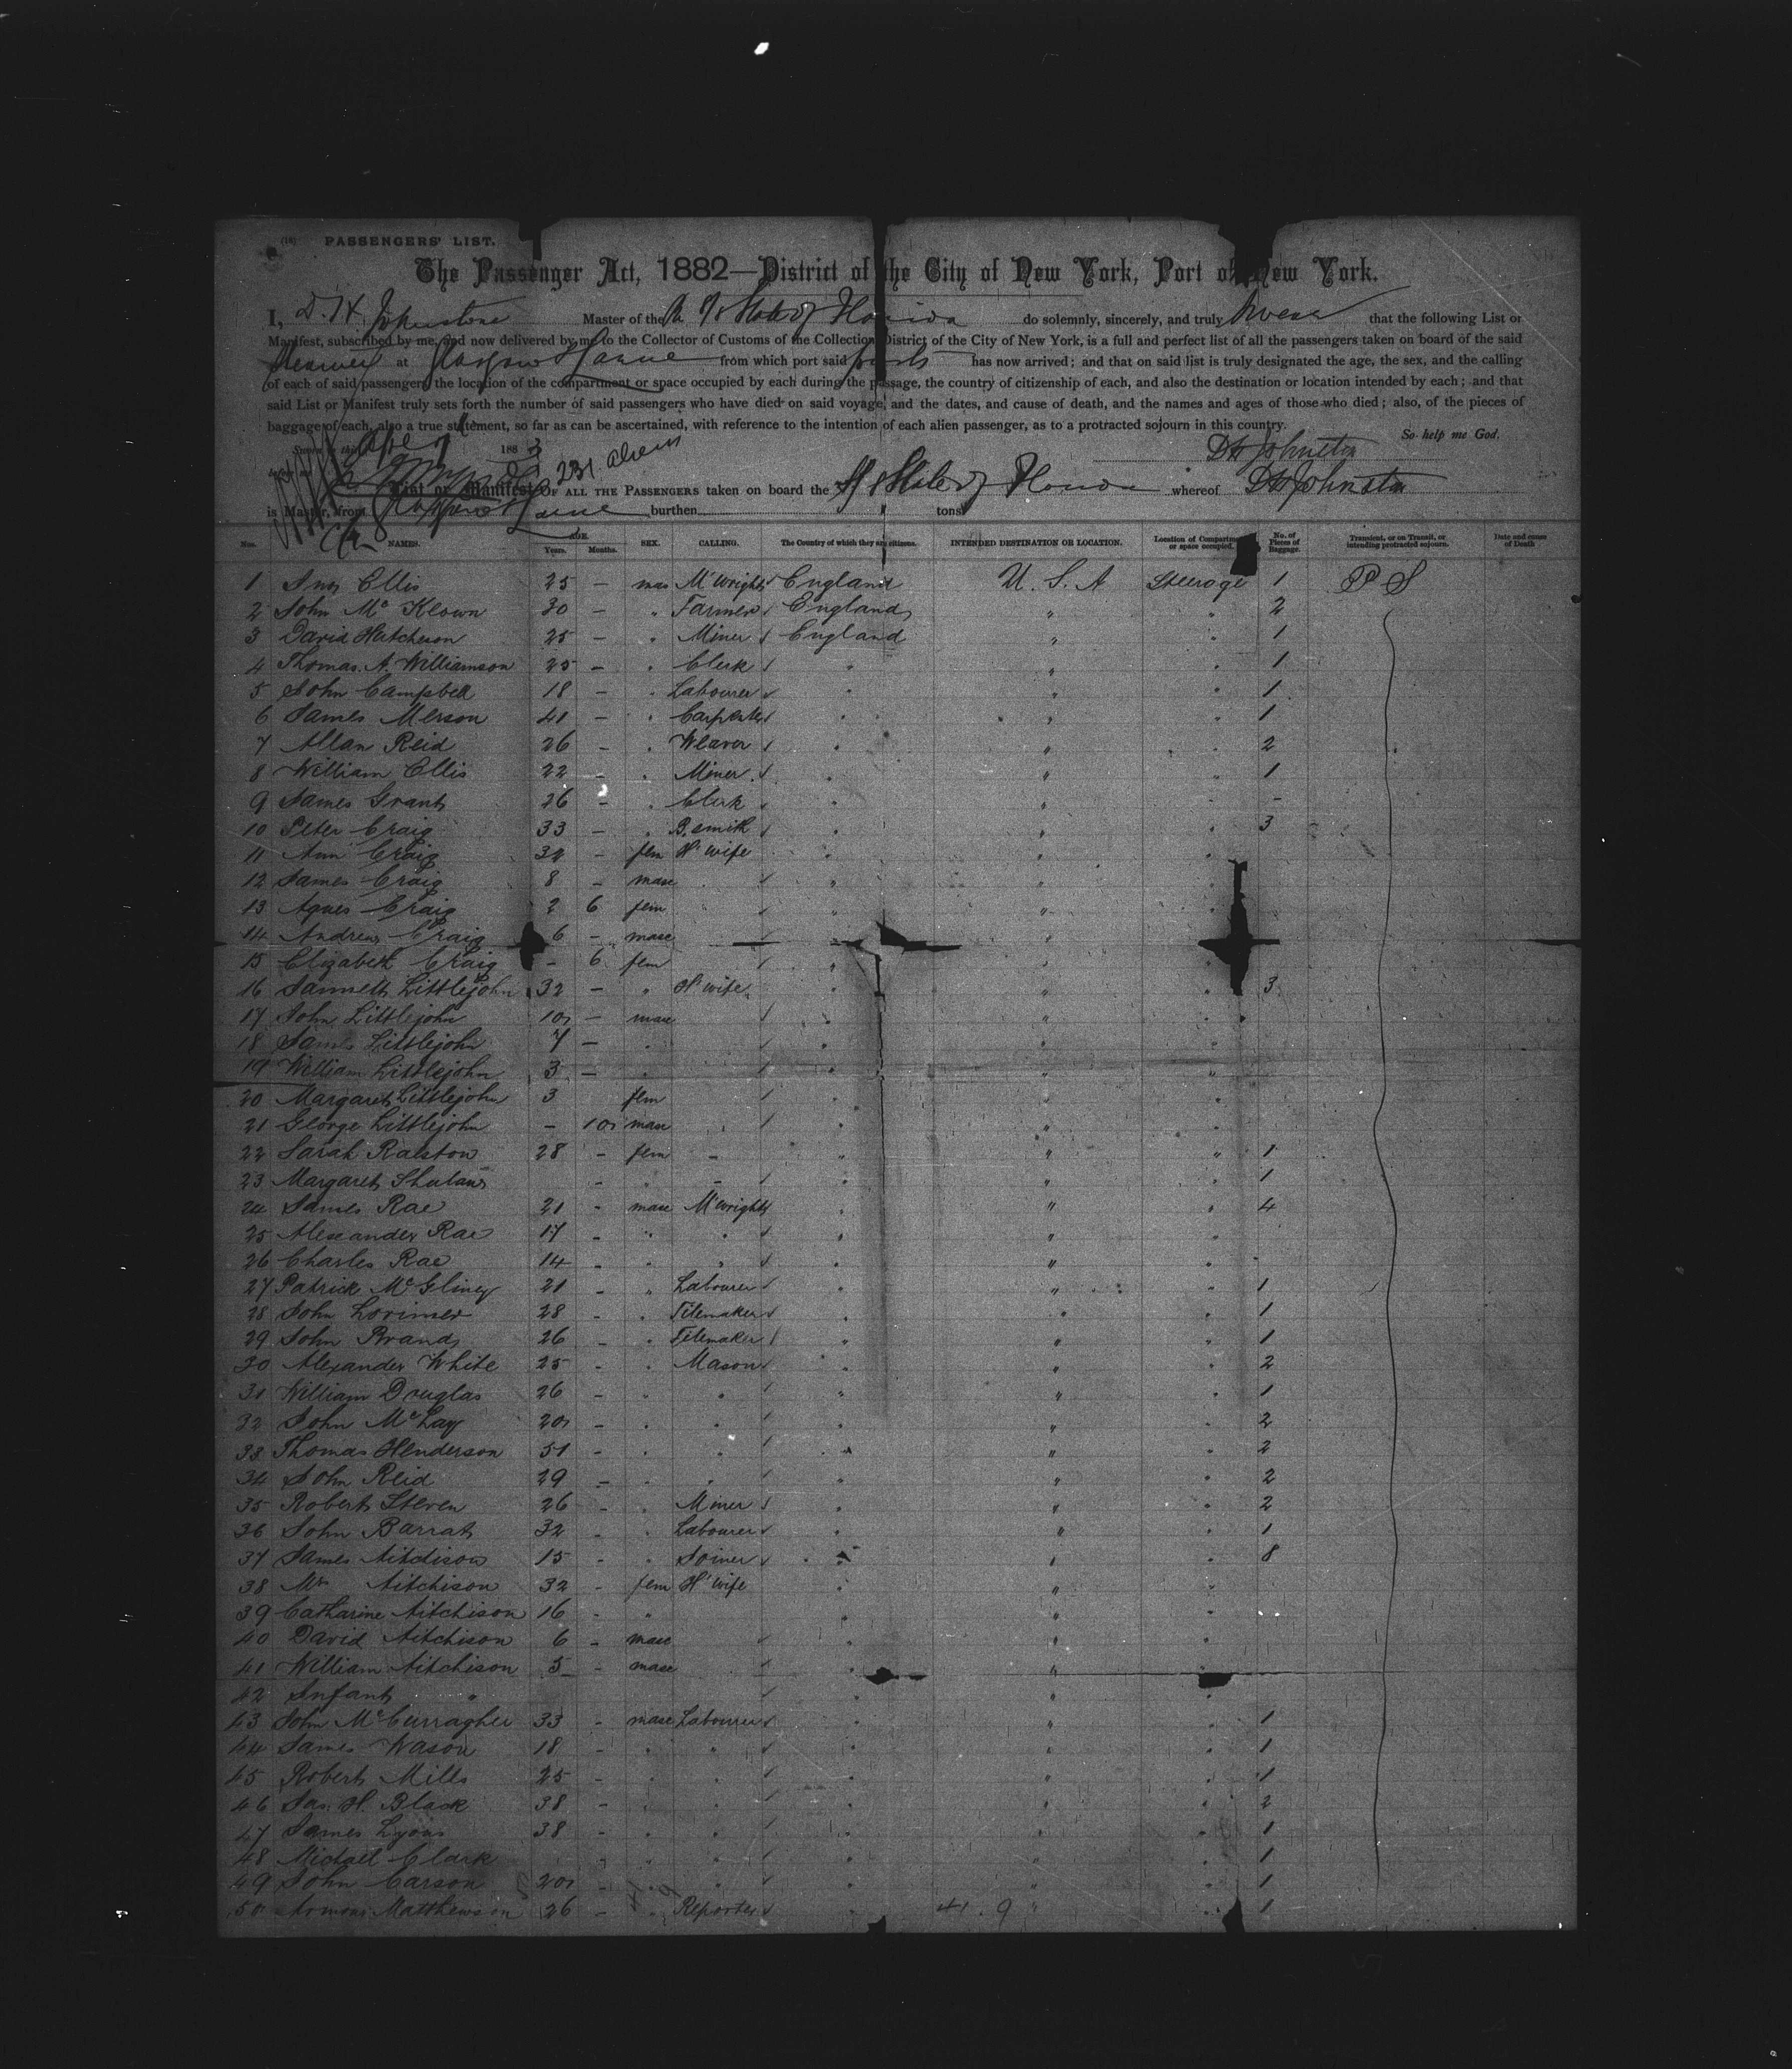 (18) PASSENGERS' LIST.
The Passenger Act, 1882—District of the City of New York, Port of New York.
I, D. H. Johnstone Master of the State of Florida do solemnly, sincerely, and truly Swear that the following List or
Manifest, subscribed by me, and now delivered by me to the Collector of Customs of the Collection District of the City of New York, is a full and perfect list of all the passengers taken on board of the said
Steamer at Glasgow & Larne from which port said has now arrived; and that on said list is truly designated the age, the sex, and the calling
of each of said passengers, the location of the compartment or space occupied by each during the passage, the country of citizenship of each, and also the destination or location intended by each; and that
said List or Manifest truly sets forth the number of said passengers who have died on said voyage, and the dates, and cause of death, and the names and ages of those who died; also, of the pieces of
baggage of each, also a true statement, so far as can be ascertained, with reference to the intention of each alien passenger, as to a protracted sojourn in this country.
So help me God.
Sworn to this 1883
before me
D H Johnston
231 Aliens
List or Manifest OF ALL THE PASSENGERS taken on board the S S State of Florida whereof D H Johnston
is Master, from Glasgow & Larne burthen tons
Nos. NAMES. AGE. Years. Months. SEX. CALLING. The Country of which they are citizens. INTENDED DESTINATION OR LOCATION. Location of Compartment or space occupied. No. of Pieces of Baggage. Transient, or on Transit, or intending protracted sojourn. Date and cause of Death
1 Ellis 25 — mas M'Wright England U. S. A Steerage 1 P S
2 John Mc Keown 30 — " Farmer England " " 2
3 David Hutcheson 25 — " Miner England " " 1
4 Thomas. A. Williamson 25 — " Clerk " " " 1
5 John Campbell 18 — " Labourer " " " 1
6 James Merson 41 — " Carpenter " " " 1
7 Allan Reid 26 — " Weaver " " " 2
8 William Ellis 22 — " Miner " " " 1
9 James Grant 26 — " Clerk " " " -
10 Peter Craig 33 — " B. smith " " " 3
11 Ann Craig 32 — fem H' wife " " "
12 James Craig 8 — masc " " "
13 Agnes Craig 2 6 fem " " "
14 Andrew Craig 6 — masc " "
15 Elizabeth Craig — 6 fem " " "
16 Jannett Littlejohn 32 — " H' wife " " " 3
17 John Littlejohn 10 — masc " " "
18 James Littlejohn 7 — " " " "
19 William Littlejohn 3 — " " " "
20 Margaret Littlejohn 3 fem " " "
21 George Littlejohn — 10 masc " " "
22 Sarah Ralston 28 — fem — " " " 1
23 Margaret — " — " " " 1
24 James Rae 21 - masc M'Wright " " " 4
25 Alexander Rae 17 - " " " " "
26 Charles Rae 14 - " " " " "
27 Patrick Mc Gliney 21 - " Labourer " " " 1
28 John Lorimer 28 - " Tilemaker " " " 1
29 John Brand 26 - " Tilemaker " " " 1
30 Alexander White 25 - " Mason " " " 2
31 William Douglas 26 - " " " " " 1
32 John Mc Lay 20 - " " " " 2
33 Thomas Henderson 51 - " " " " " 2
34 John Reid 29 - " " " " " 2
35 Robert Steven 26 - " Miner " " " 2
36 John Barrat 32 - " Labourer " " " 1
37 James Aitchison 15 - " Joiner " " " 8
38 Mrs Aitchison 32 - fem H' wife " " "
39 Catharine Aitchison 16 - " " " "
40 David Aitchison 6 - masc " " "
41 William Aitchison 5 - masc " "
42 Infant " " " "
43 John Mc Curragher 33 - masc Labourer " " " 1
44 James Wason 18 - " " " " " 1
45 Robert Mills 25 - " " " " " 1
46 Jas. H. Black 38 - " " " " " 2
47 James Lyons 38 - " " " " " 1
48 Michael Clark " " " " " 1
49 John Carson 20 - " " " " " 1
50 Matthewson 26 - " Reporter " 41 . 9 " " 1